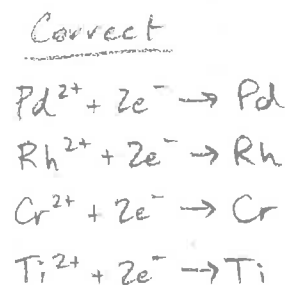 Correct
Pd²⁺ + 2e⁻ → Pd
Rh²⁺ + 2e⁻ → Rh
Cr²⁺ + 2e⁻ → Cr
Ti²⁺ + 2e⁻ → Ti